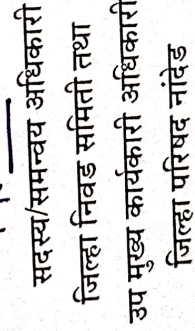 सदस्य/समन्वय अधिकारी
जिल्हा निवड समिती तथा
उप मुख्य कार्यकारी अधिकारी
जिल्हा परिषद नांदेड